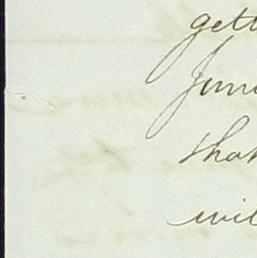 gett
June
that
wil